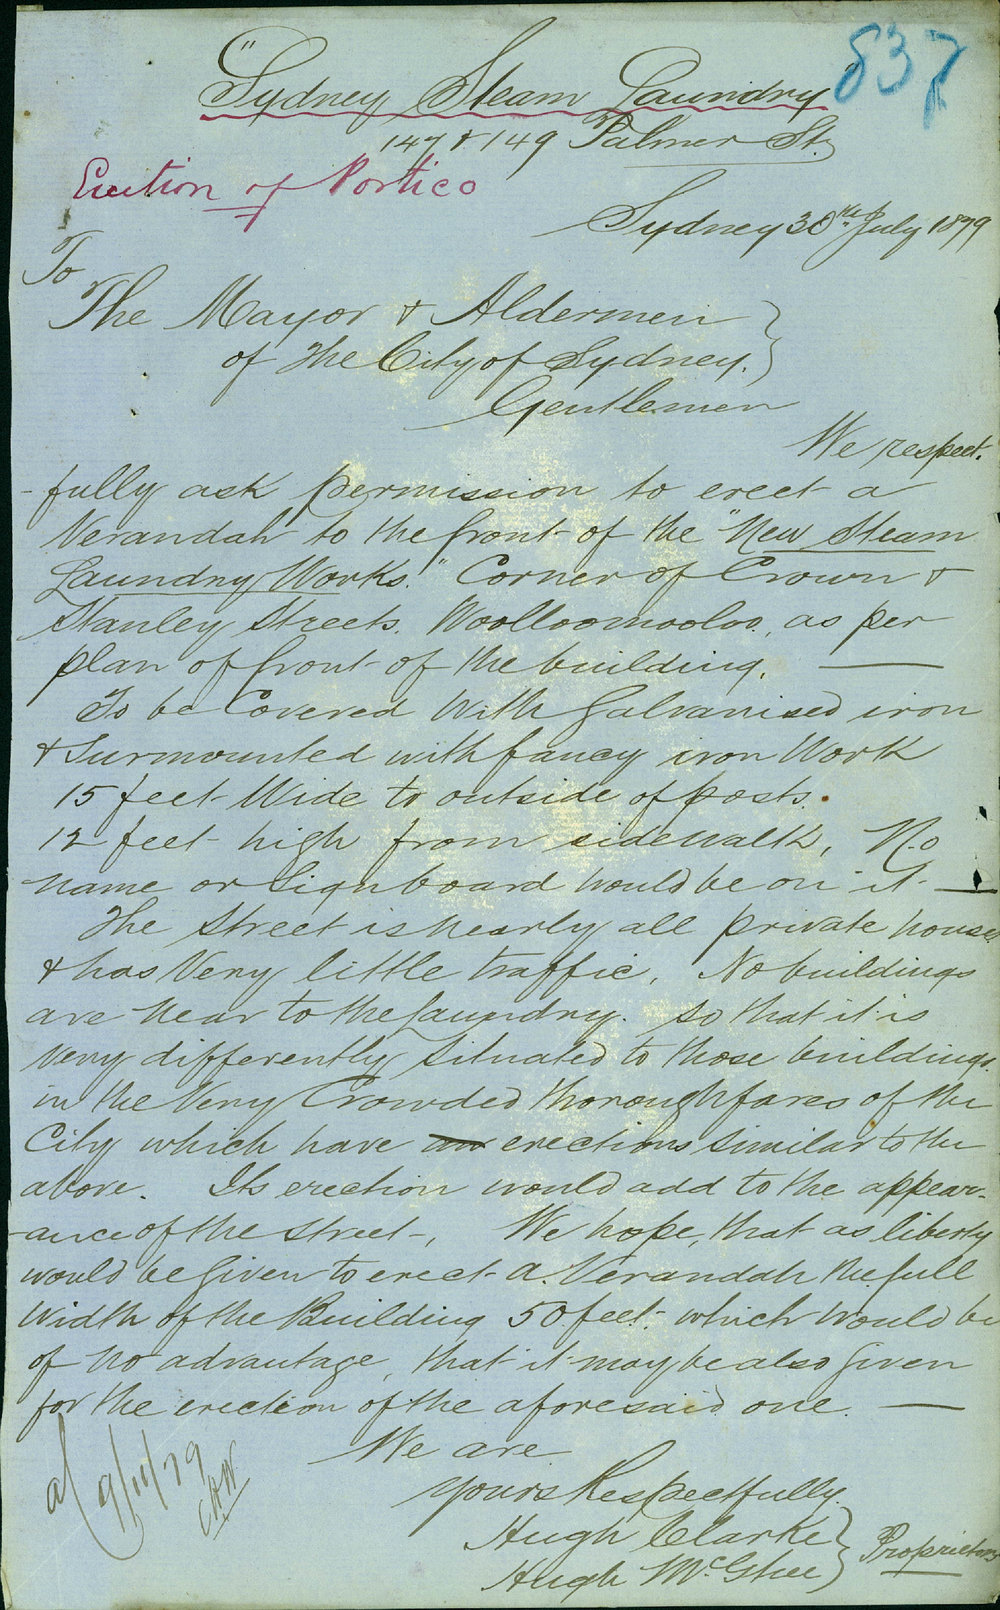 837
"Sydney Steam Laundry"
147 & 149 Palmer St.
Erection of Portico
Sydney 30th July 1879
To
The Mayor & Aldermen
of the City of Sydney.
Gentlemen
We respect.
-fully ask permission to erect a
Verandah to the front of the "New Steam
Laundry Works." Corner of Crown &
Stanley Streets. Woolloomooloo, as per
plan of front of the building.
To be Covered with Galvanised iron
& Surmounted with fancy iron Work
15 feet Wide to outside of posts.
12 feet high from sidewalk, No
name or Signboard would be on it.
The Street is nearly all private houses
& has Very little traffic. No buildings
are near to the Laundry. so that it is
Very differently Situated to those buildings.
in the Very Crowded thoroughfares of the
City which have erections similar to the
above. Its erection would add to the appear-
-ance of the Street, We hope, that as liberty
would be given to erect a Verandah the full
Width of the Building 50 feet. which would be
of no advantage, that it may be also given
for the erection of the aforesaid one.
We are
Yours Respectfully.
Hugh Clarke
Hugh McGhee
Proprietors
9/11/79